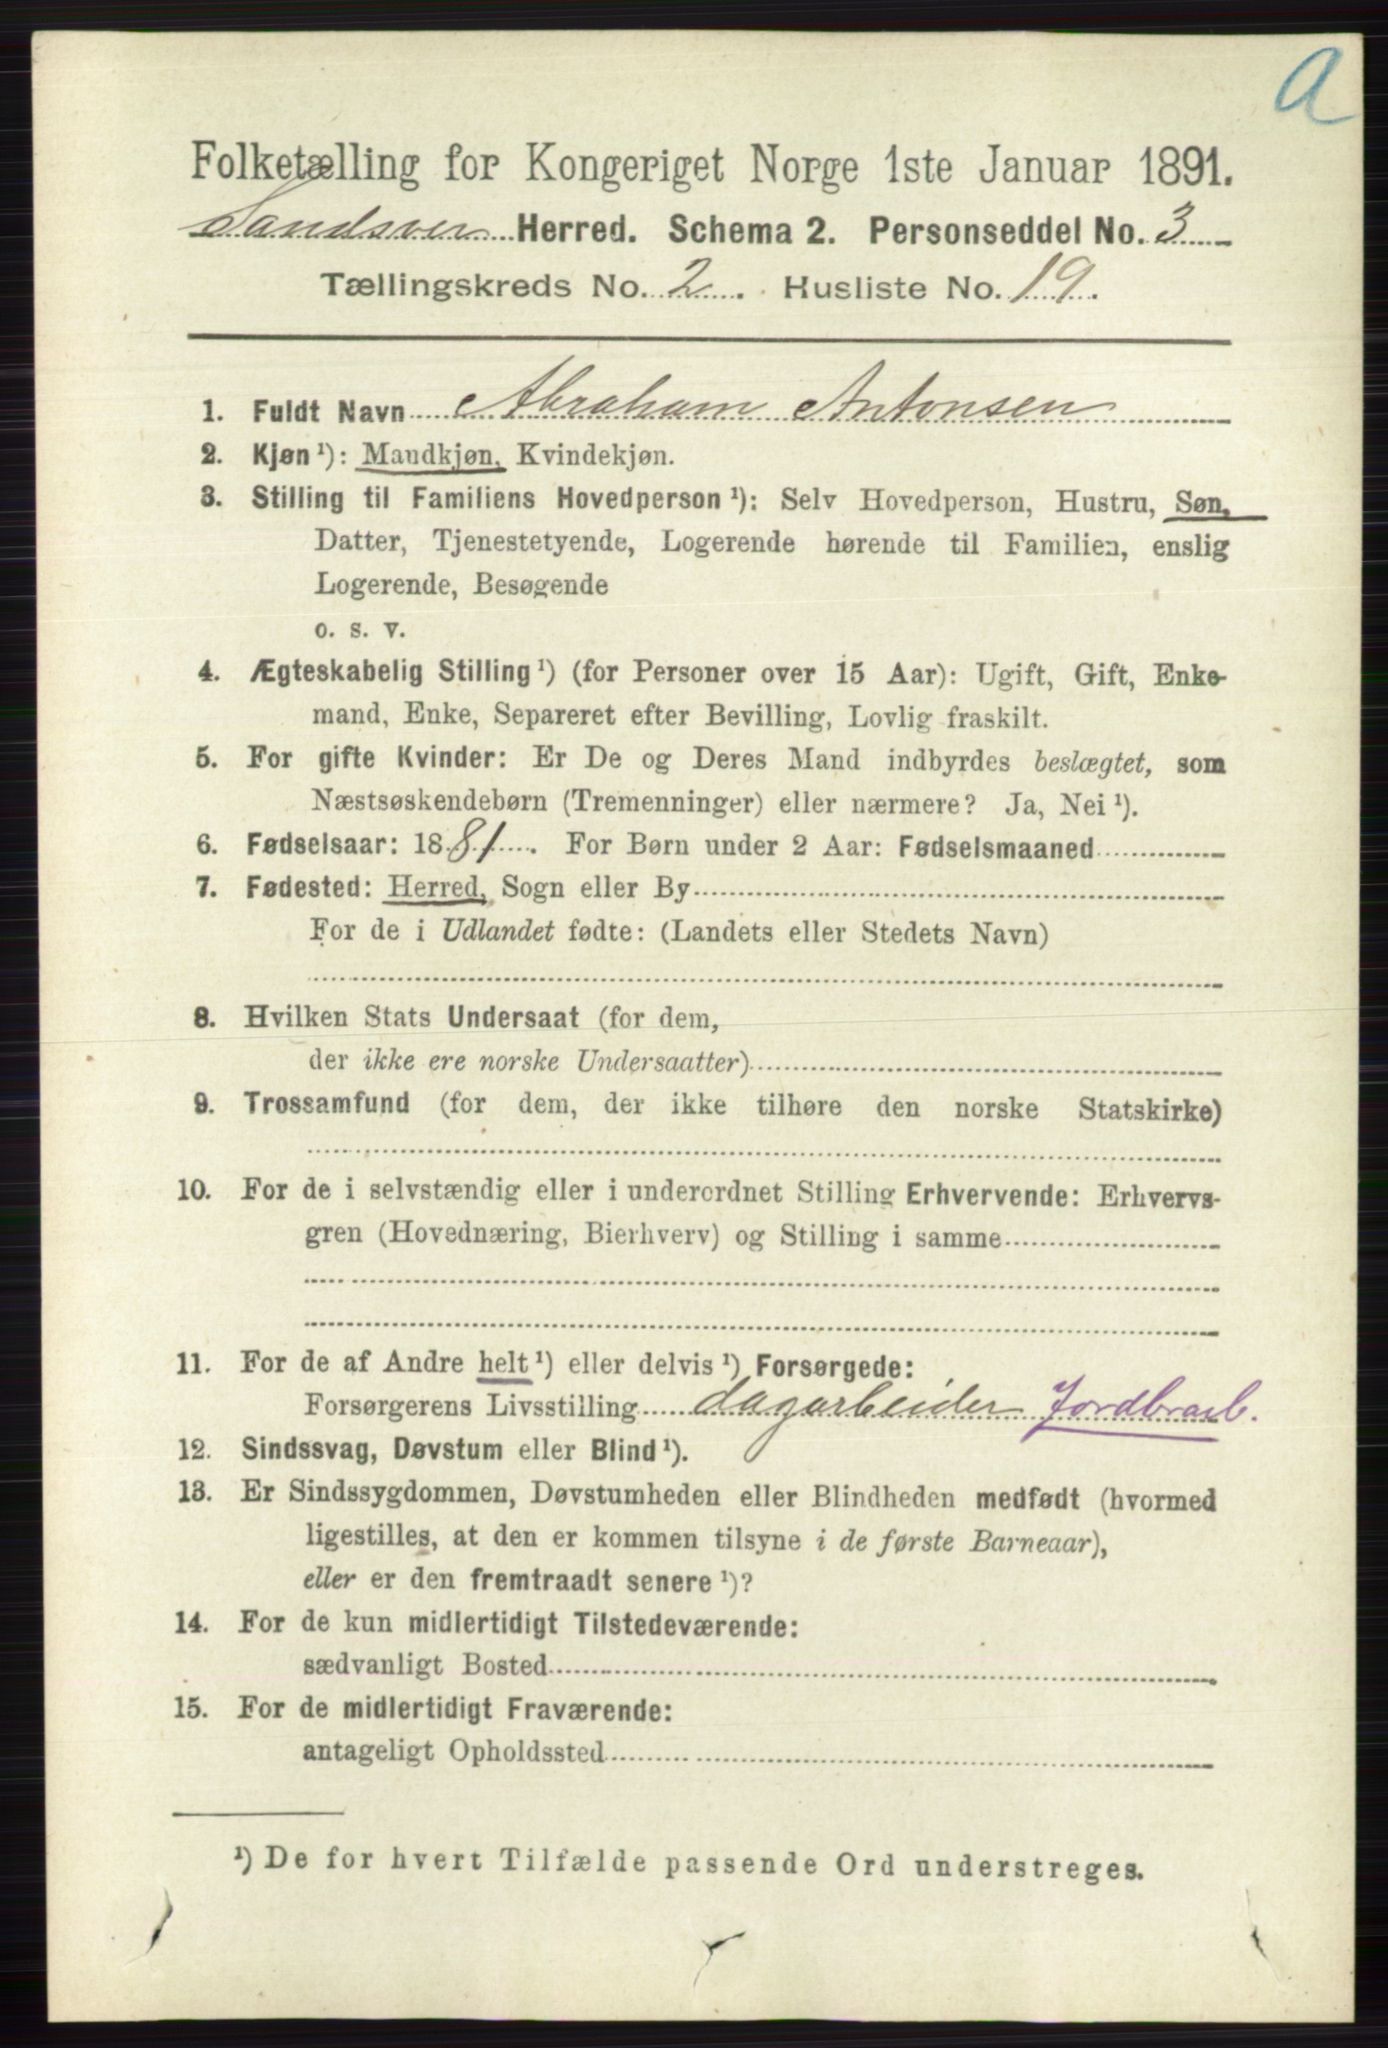 a
Folketælling for Kongeriget Norge 1ste Januar 1891.
Sandsver Herred. Schema 2. Personseddel No. 3
Tællingskreds No. 2. Husliste No. 19.
1. Fuldt Navn Abraham Antonsen
2. Kjøn¹): Mandkjøn, Kvindekjøn.
3. Stilling til Familiens Hovedperson¹): Selv Hovedperson, Hustru, Søn,
Datter, Tjenestetyende, Logerende hørende til Familien, enslig
Logerende, Besøgende
o. s. v.
4. Ægteskabelig Stilling¹) (for Personer over 15 Aar): Ugift, Gift, Enke-
mand, Enke, Separeret efter Bevilling, Lovlig fraskilt.
5. For gifte Kvinder: Er De og Deres Mand indbyrdes beslægtet, som
Næstsøskendebørn (Tremenninger) eller nærmere? Ja, Nei¹).
6. Fødselsaar: 1881. For Børn under 2 Aar: Fødselsmaaned
7. Fødested: Herred, Sogn eller By
For de i Udlandet fødte: (Landets eller Stedets Navn)
8. Hvilken Stats Undersaat (for dem,
der ikke ere norske Undersaatter)
9. Trossamfund (for dem, der ikke tilhøre den norske Statskirke)
10. For de i selvstændig eller i underordnet Stilling Erhvervende: Erhvervs-
gren (Hovednæring, Bierhverv) og Stilling i samme
11. For de af Andre helt¹) eller delvis¹) Forsørgede:
Forsørgerens Livsstilling dagarbeider Jordbrarb.
12. Sindssvag, Døvstum eller Blind¹).
13. Er Sindssygdommen, Døvstumheden eller Blindheden medfødt (hvormed
ligestilles, at den er kommen tilsyne i de første Barneaar),
eller er den fremtraadt senere¹)?
14. For de kun midlertidigt Tilstedeværende:
sædvanligt Bosted
15. For de midlertidigt Fraværende:
antageligt Opholdssted
¹) De for hvert Tilfælde passende Ord understreges.